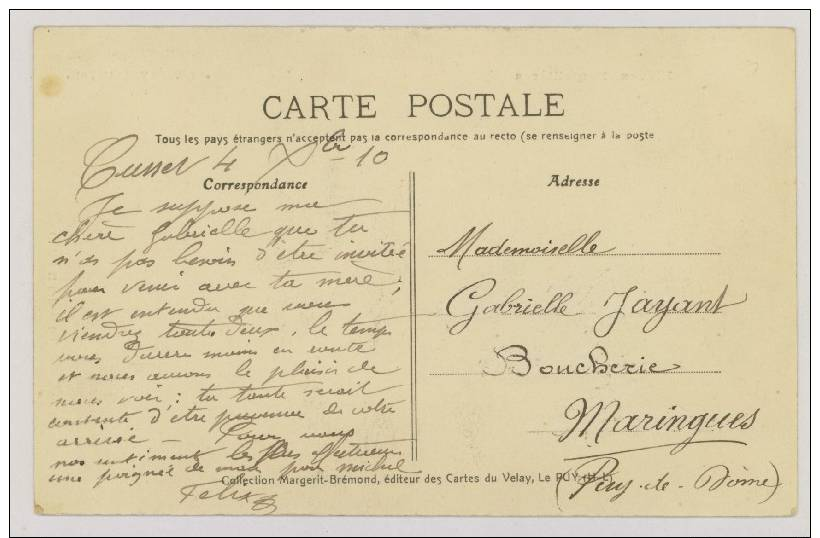 CARTE POSTALE
Tous les pays étrangers n'acceptent pas la correspondance au recto (se renseigner à la poste
Cusset 4 Xbr 10
Correspondance
Je suppose ma
chère Gabrielle que tu
n'as pas besoin d'être invitée
pour venir avec ta mère,
il est entendu que vous
viendrez toutes deux. le temps
vous durera moins en route
et nous aurons le plaisir de
vous voir ; ta tante serait
contente d'être prévenue de votre
arrivée — Pour vous
nos sentiments les plus affectueux
une poignée de main pour michel
Felix
Adresse
Mademoiselle
Gabrielle Jayant
Boucherie
Maringues
(Puy-de-Dôme)
Collection Margerit-Brémond, éditeur des Cartes du Velay, Le PUY (H-L)